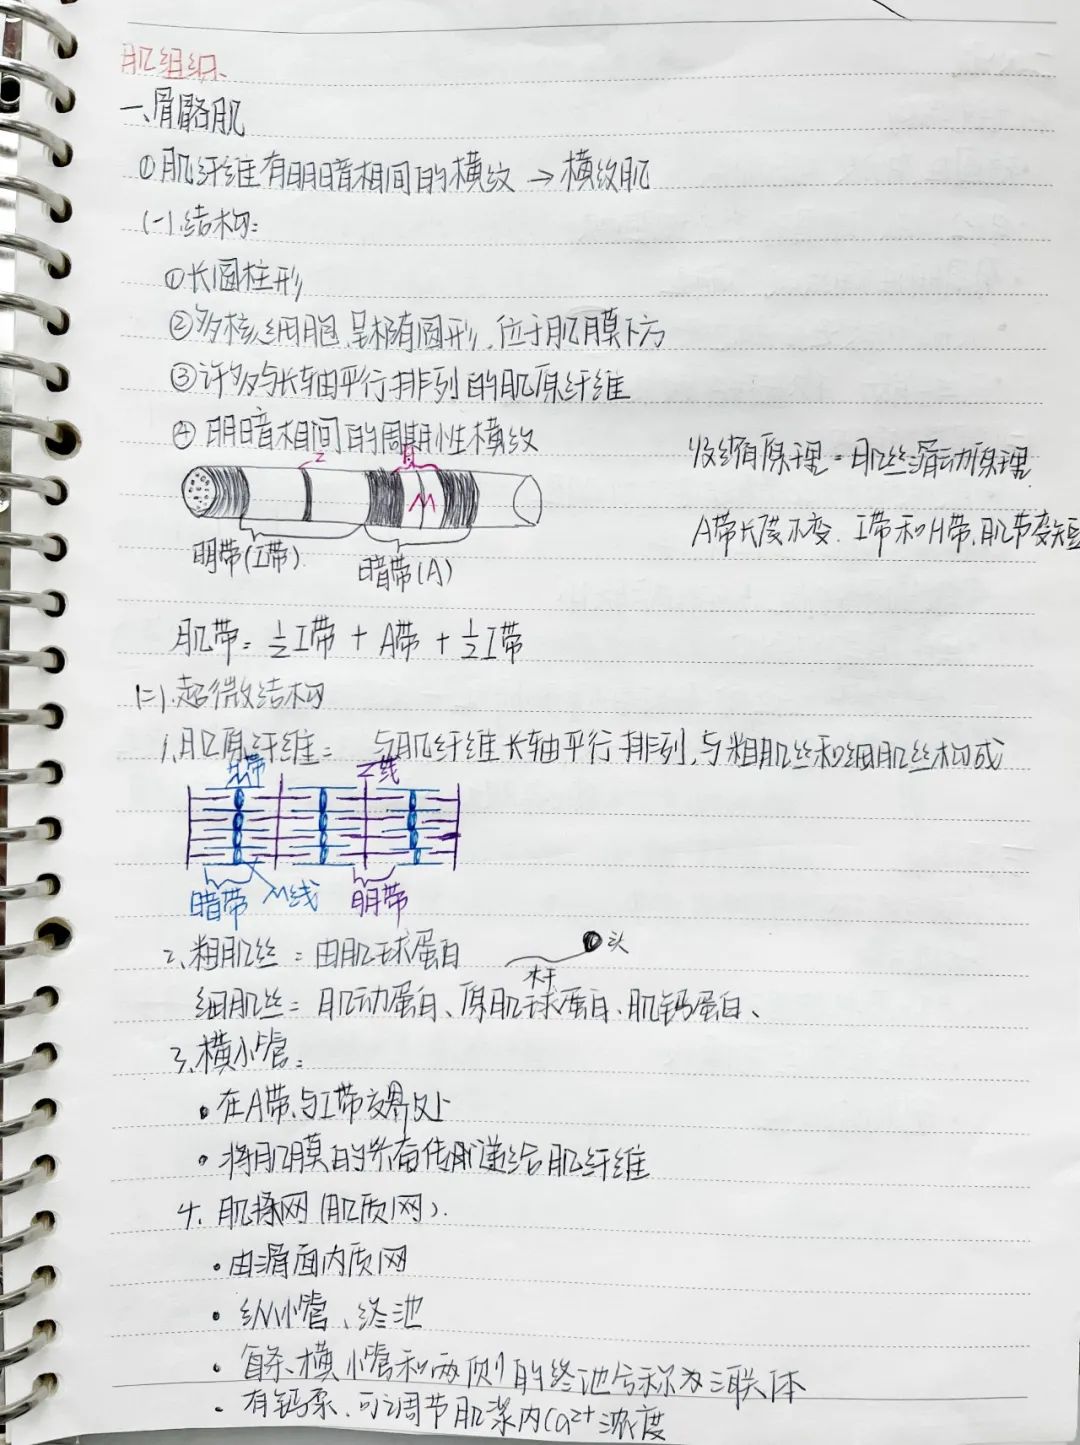 肌组织
一、骨骼肌
①肌纤维有明暗相间的横纹 → 横纹肌
(一).结构:
①长圆柱形
②多核细胞,呈椭圆形,位于肌膜下方
③许多与长轴平行排列的肌原纤维
④ 明暗相间的周期性横纹
收缩原理=肌丝滑动原理
Z
H
M
A带长度不变. I带和H带,肌节变短
明带(I带)
暗带(A)
肌带= ½I带 + A带 + ½I带
(二).超微结构
1.肌原纤维= 与肌纤维长轴平行排列,与粗肌丝和细肌丝构成
H带 Z线
暗带 M线 明带
2、粗肌丝 = 由肌球蛋白
头
杆
细肌丝= 肌动蛋白、原肌球蛋白、肌钙蛋白、
3、横小管:
• 在A带与I带交界处
• 将肌膜的兴奋传递给肌纤维
4. 肌浆网(肌质网).
• 由滑面内质网
• 纵小管、终池
• 每条横小管和两侧的终池合称为三联体
• 有钙泵、可调节肌浆内Ca²⁺浓度